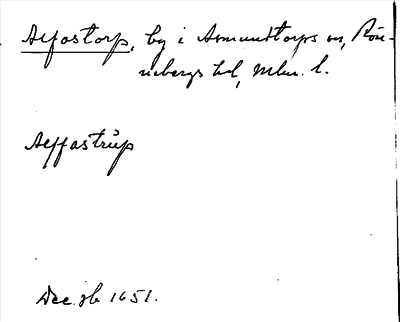 Alfastorp, by i Asmundtorps sn, Rön-
nebergs hd, Mlm. l.
Alffastrüp
Dec. jb 1651.